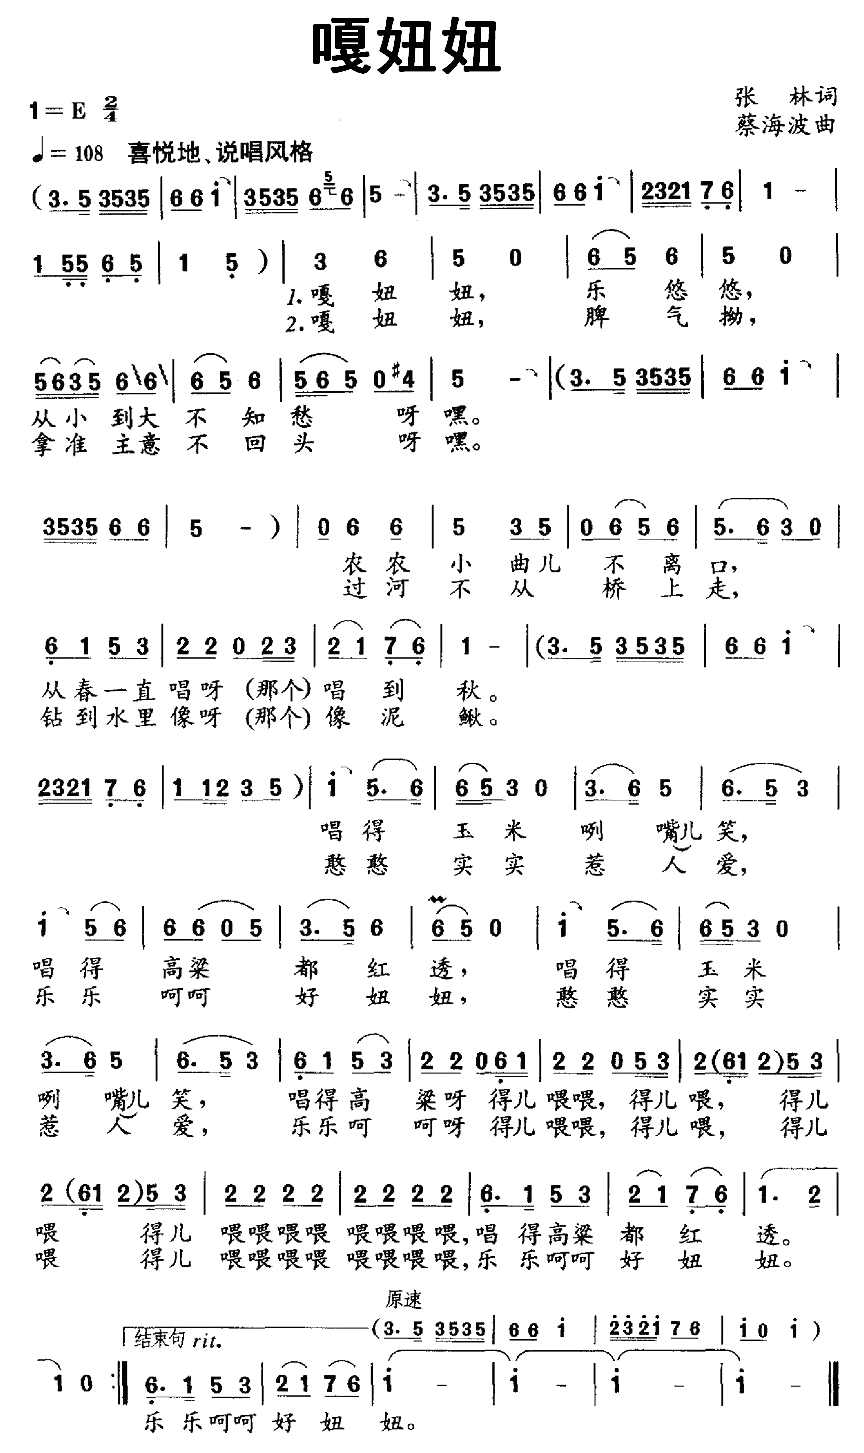 嘎妞妞
1=E 2/4
张 林词
蔡海波曲
♩=108 喜悦地、说唱风格
(3. 5 3535 | 6 6 i | 3535 6 5 6 | 5 - | 3. 5 3535 | 6 6 i | 2321 7 6 | 1 - |
1 55 6 5 | 1 5 ) | 3 6 | 5 0 | 6 5 6 | 5 0 |
1.嘎 妞 妞, 乐 悠 悠,
2.嘎 妞 妞, 脾 气 拗,
5635 6 6 | 6 5 6 | 5 6 5 0 #4 | 5 - | (3. 5 3535 | 6 6 i |
从小 到大 不 知 愁 呀 嘿。
拿准 主意 不 回 头 呀 嘿。
3535 6 6 | 5 - ) | 0 6 6 | 5 3 5 | 0 6 5 6 | 5. 6 3 0 |
农 农 小 曲儿 不 离 口,
过 河 不 从 桥 上 走,
6 1 5 3 | 2 2 0 2 3 | 2 1 7 6 | 1 - | (3. 5 3 5 3 5 | 6 6 i |
从春一直 唱呀 (那个) 唱 到 秋。
钻到水里 像呀 (那个) 像 泥 鳅。
2321 7 6 | 1 12 3 5 ) | i 5. 6 | 6 5 3 0 | 3. 6 5 | 6. 5 3 |
唱 得 玉 米 咧 嘴儿 笑,
憨 憨 实 实 惹 人 爱,
i 5 6 | 6 6 0 5 | 3. 5 6 | 6 5 0 | i 5. 6 | 6 5 3 0 |
唱 得 高粱 都 红 透, 唱 得 玉 米
乐 乐 呵呵 好 妞 妞, 憨 憨 实 实
3. 6 5 | 6. 5 3 | 6 1 5 3 | 2 2 0 6 1 | 2 2 0 5 3 | 2 (61 2) 5 3 |
咧 嘴儿 笑, 唱得 高 粱呀 得儿 喂喂, 得儿 喂, 得儿
惹 人 爱, 乐乐 呵 呵呀 得儿 喂喂, 得儿 喂, 得儿
2 (61 2) 5 3 | 2 2 2 2 | 2 2 2 2 | 6. 1 5 3 | 2 1 7 6 | 1. 2 |
喂 得儿 喂喂喂喂 喂喂喂喂, 唱 得高粱 都 红 透。
喂 得儿 喂喂喂喂 喂喂喂喂, 乐 乐呵呵 好 妞 妞。
原速
结束句 rit. (3. 5 3535 | 6 6 i | 2321 7 6 | i 0 i )
1 0 :| 6. 1 5 3 | 2 1 7 6 | i - | i - | i - | i - |
乐 乐呵呵 好 妞 妞。